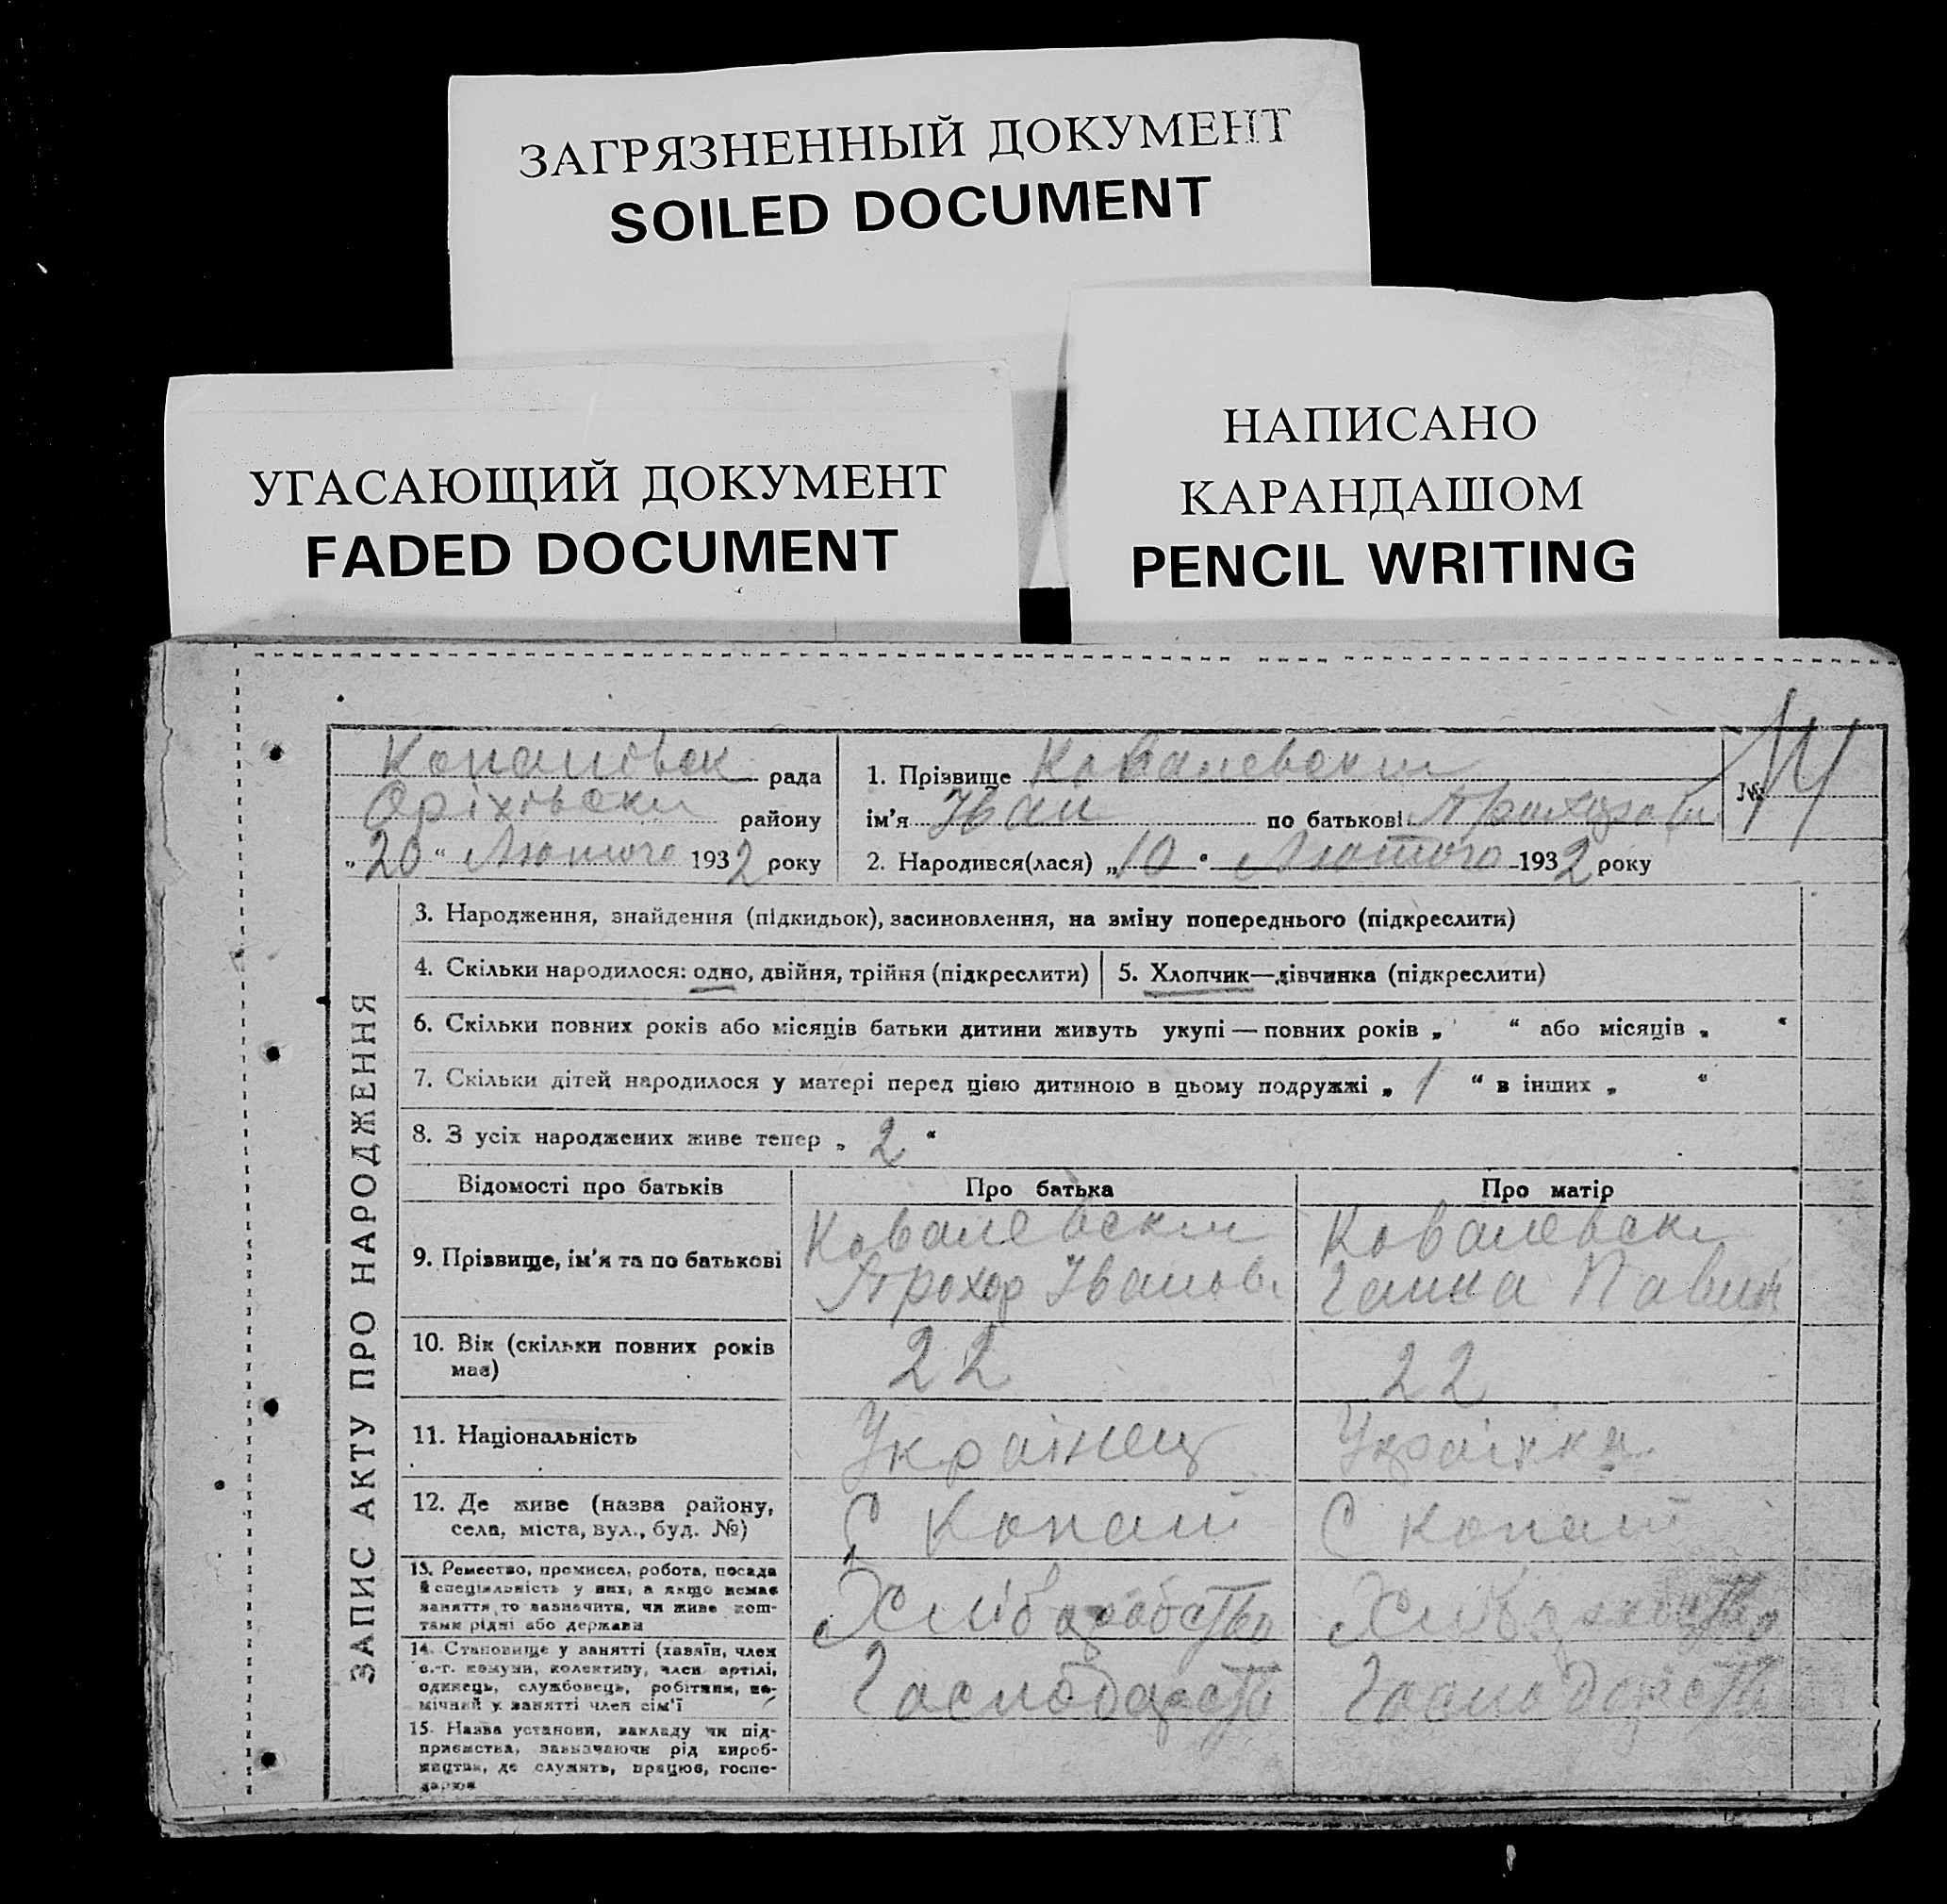 ЗАГРЯЗНЕННЫЙ ДОКУМЕНТ
SOILED DOCUMENT
УГАСАЮЩИЙ ДОКУМЕНТ
FADED DOCUMENT
НАПИСАНО
КАРАНДАШОМ
PENCIL WRITING
Копанівск рада
Оріхівськи району
„20“ Лютого 1932 року
1. Прізвище Ковалевский
ім'я Іван по батькові Прохорови
2. Народився(лася) „10“ Лютого 1932 року
№ 14
ЗАПИС АКТУ ПРО НАРОДЖЕННЯ
3. Народження, знайдення (підкидьок), засиновлення, на зміну попереднього (підкреслити)
4. Скільки народилося: одно, двійня, трійня (підкреслити)
5. Хлопчик—дівчинка (підкреслити)
6. Скільки повних років або місяців батьки дитини живуть укупі — повних років „ “ або місяців „ “
7. Скільки дітей народилося у матері перед цією дитиною в цьому подружжі „ 1 “ в інших „ “
8. З усіх народжених живе тепер „ 2 “
Відомості про батьків Про батька Про матір
9. Прізвище, ім'я та по батькові
Ковалевский
Прохор Іванови
Ковалевск
Ганна Павли
10. Вік (скільки повних років
має)
22
22
11. Національність
Українец
Українка
12. Де живе (назва району,
села, міста, вул., буд. №)
С Копані
С Копані
13. Ремество, промисел, робота, посада
й спеціяльність у них, а якщо немає
заняття, то зазначити, чи живе кош-
тами рідні або держави
Хліборобство
Хліборобство
14. Становище у занятті (хазяїн, член
с.-г. комуни, колективу, член артілі,
одинець, службовець, робітник, по-
мічний у занятті член сім'ї
Господарств
Господарств
15. Назва установи, закладу чи під-
приємства, зазначаючи рід вироб-
ництва, де служить, працює, госпо-
дарює